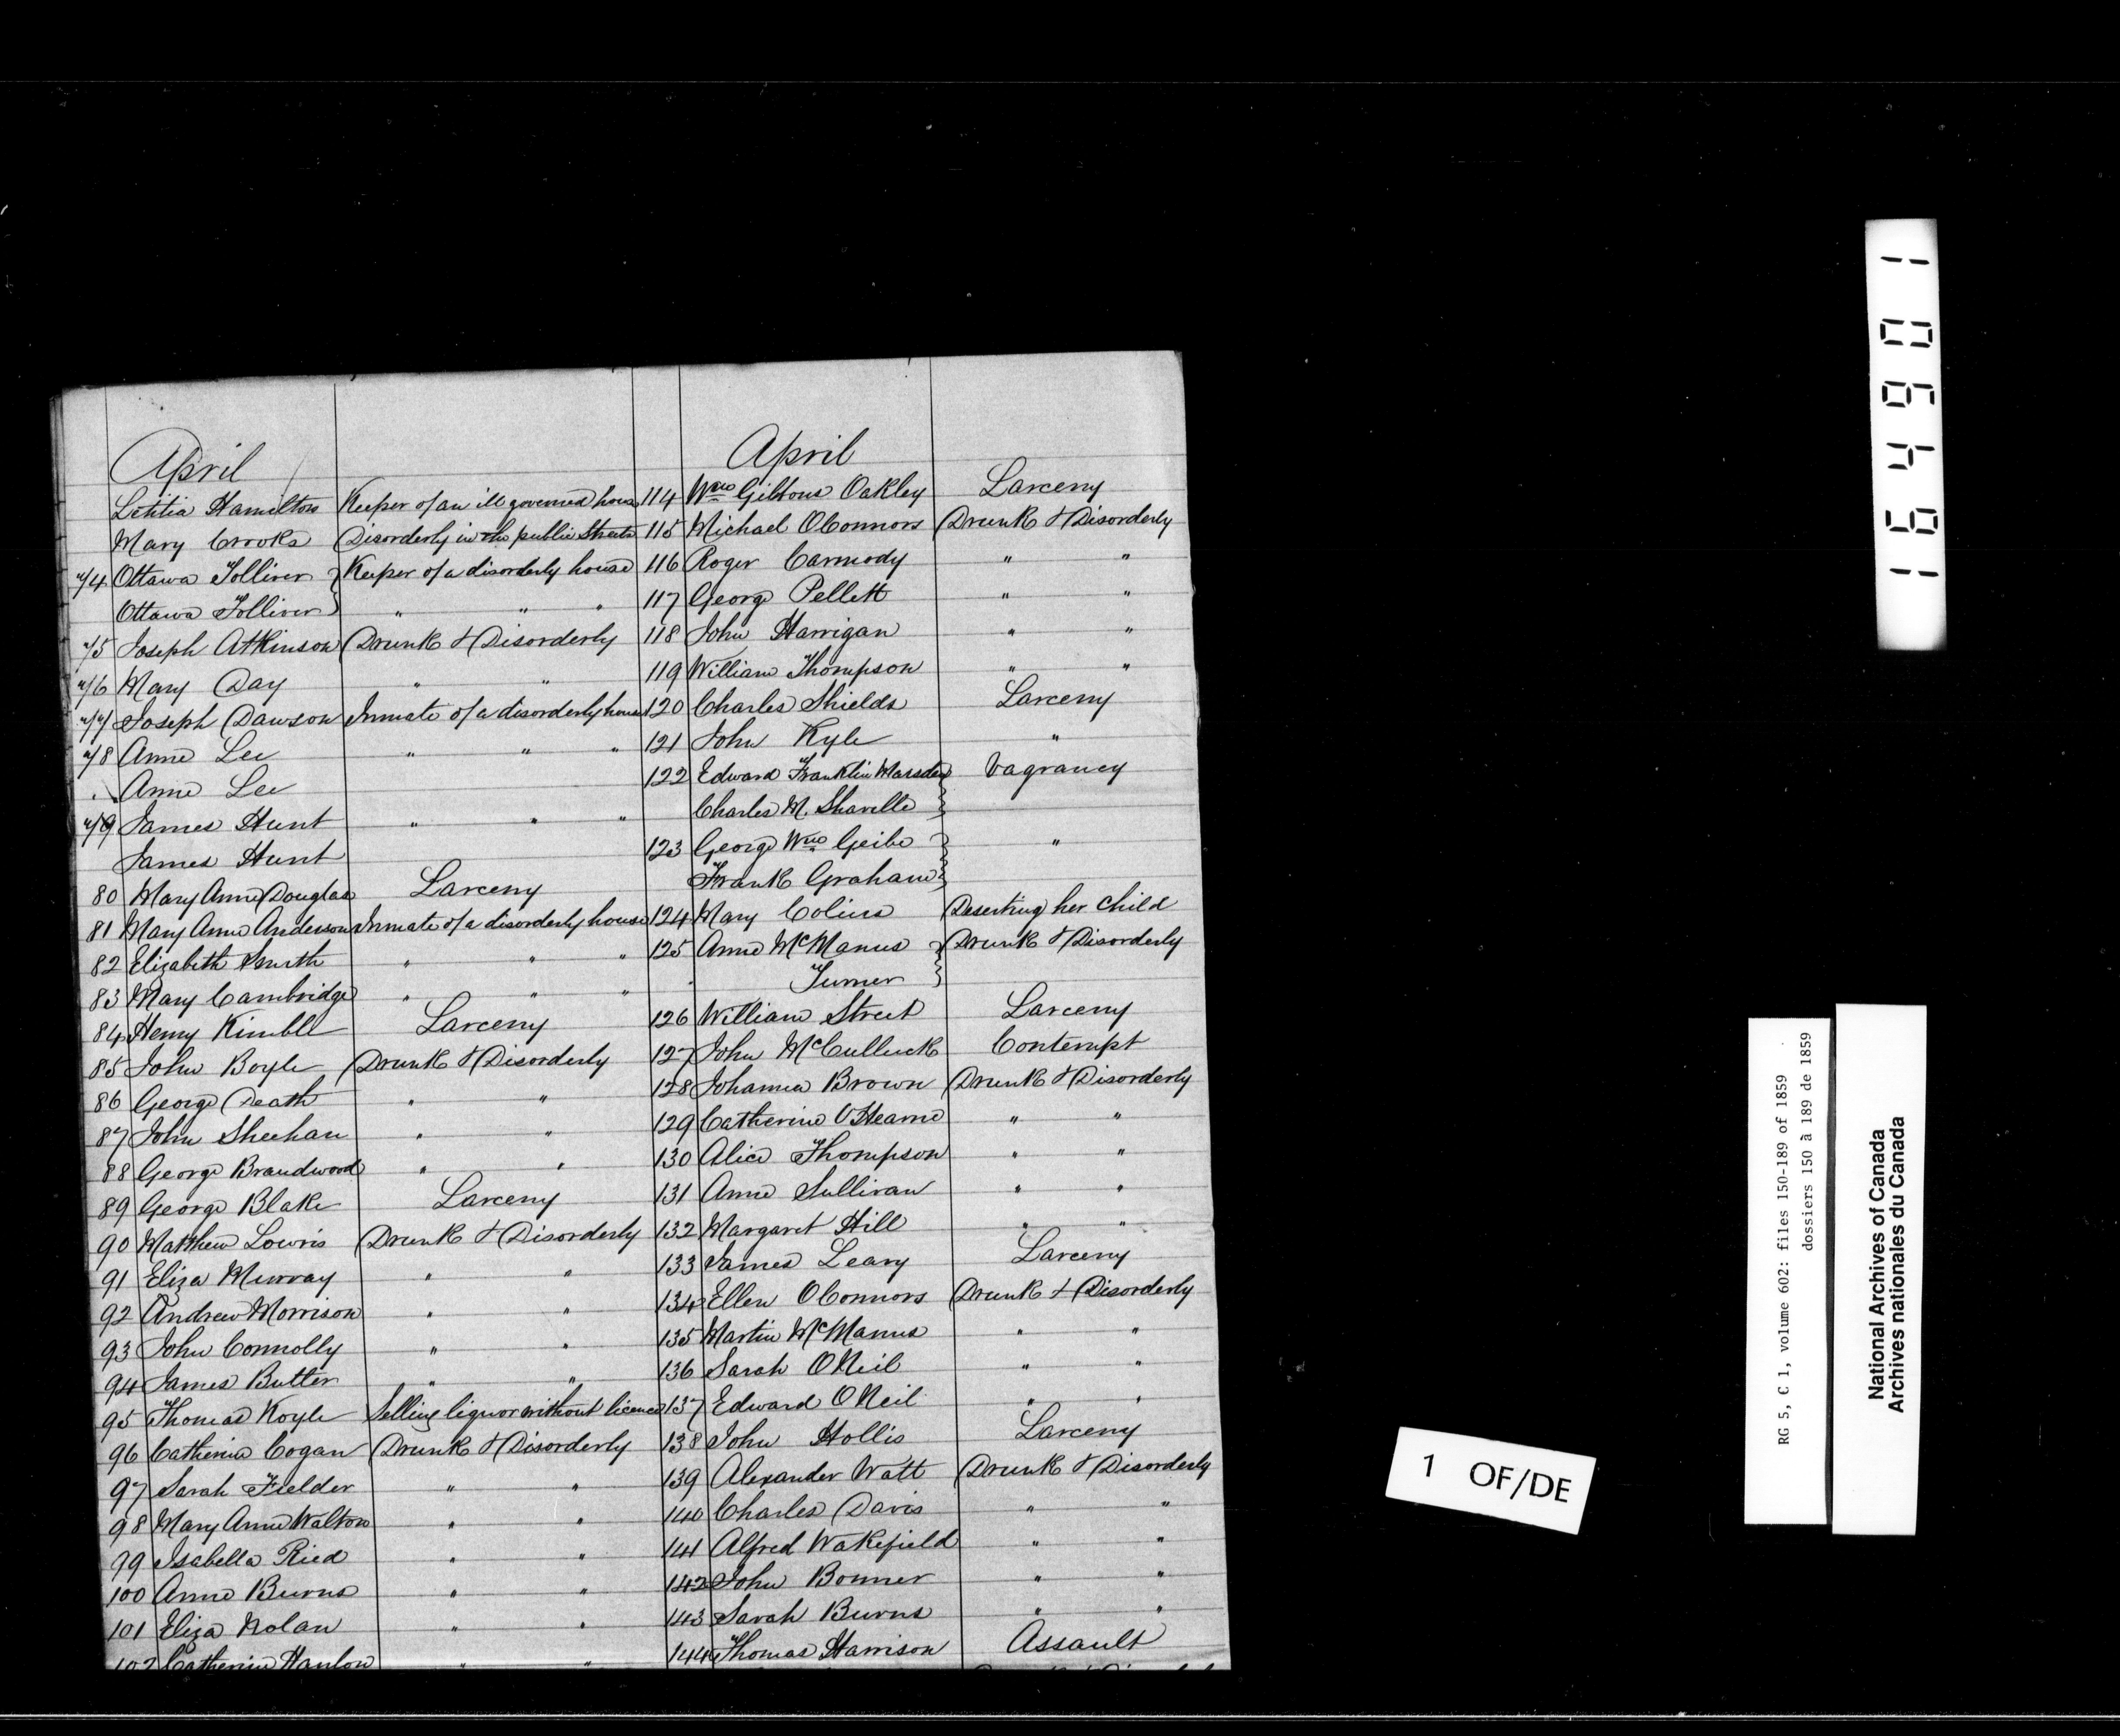 April
Letitia Hamilton Keeper of an ill governed house
Mary Crooks Disorderly in the public Streets
74 Ottawa Tolliver } Keeper of a disorderly house
Ottawa Tolliver } " " "
75 Joseph Atkinson Drunk & Disorderly
76 Mary Day " "
77 Joseph Dawson Inmate of a disorderly house
78 Anne Lee " " "
Anne Lee
79 James Hunt " " "
James Hunt
80 Mary Anne Douglas Larceny
81 Mary Anne Anderson Inmate of a disorderly house
82 Elizabeth Smith " " "
83 Mary Cambridge " " "
84 Henry Kimble Larceny
85 John Boyle Drunk & Disorderly
86 George Death " "
87 John Sheehan " "
88 George Brandwood " "
89 George Blake Larceny
90 Matthew Lowris Drunk & Disorderly
91 Eliza Murray " "
92 Andrew Morrison " "
93 John Connolly " "
94 James Butler " "
95 Thomas Koyle Selling liquor without licence
96 Catherine Cogan Drunk & Disorderly
97 Sarah Fielder " "
98 Mary Anne Walton " "
99 Isabella Ried " "
100 Anne Burns " "
101 Eliza Nolan " "
102 Catherine Hanlon " "
April
114 Wm Gibbons Oakley Larceny
115 Michael OConnors Drunk & Disorderly
116 Roger Carmody " "
117 George Pellett " "
118 John Harrigan " "
119 William Thompson " "
120 Charles Shields Larceny
121 John Kyle "
122 Edward Franklin Marsden } Vagrancy
Charles M. Sharelle }
123 George Wm Geibe } "
Frank Graham }
124 Mary Colins Deserting her child
125 Anne McManus } Drunk & Disorderly
Turner }
126 William Street Larceny
127 John McCulluck Contempt
128 Johanna Brown Drunk & Disorderly
129 Catherine OHearne " "
130 Alice Thompson " "
131 Anne Sullivan " "
132 Margaret Hill " "
133 James Leary Larceny
134 Ellen OConnors Drunk & Disorderly
135 Martin McManus " "
136 Sarah ONeil " "
137 Edward ONeil " "
138 John Hollis Larceny
139 Alexander Watt Drunk & Disorderly
140 Charles Davis " "
141 Alfred Wakefield " "
142 John Bonner " "
143 Sarah Burns " "
144 Thomas Harrison Assault
1 OF/DE
164901
RG 5, C 1, volume 602: files 150-189 of 1859
dossiers 150 à 189 de 1859
National Archives of Canada
Archives nationales du Canada